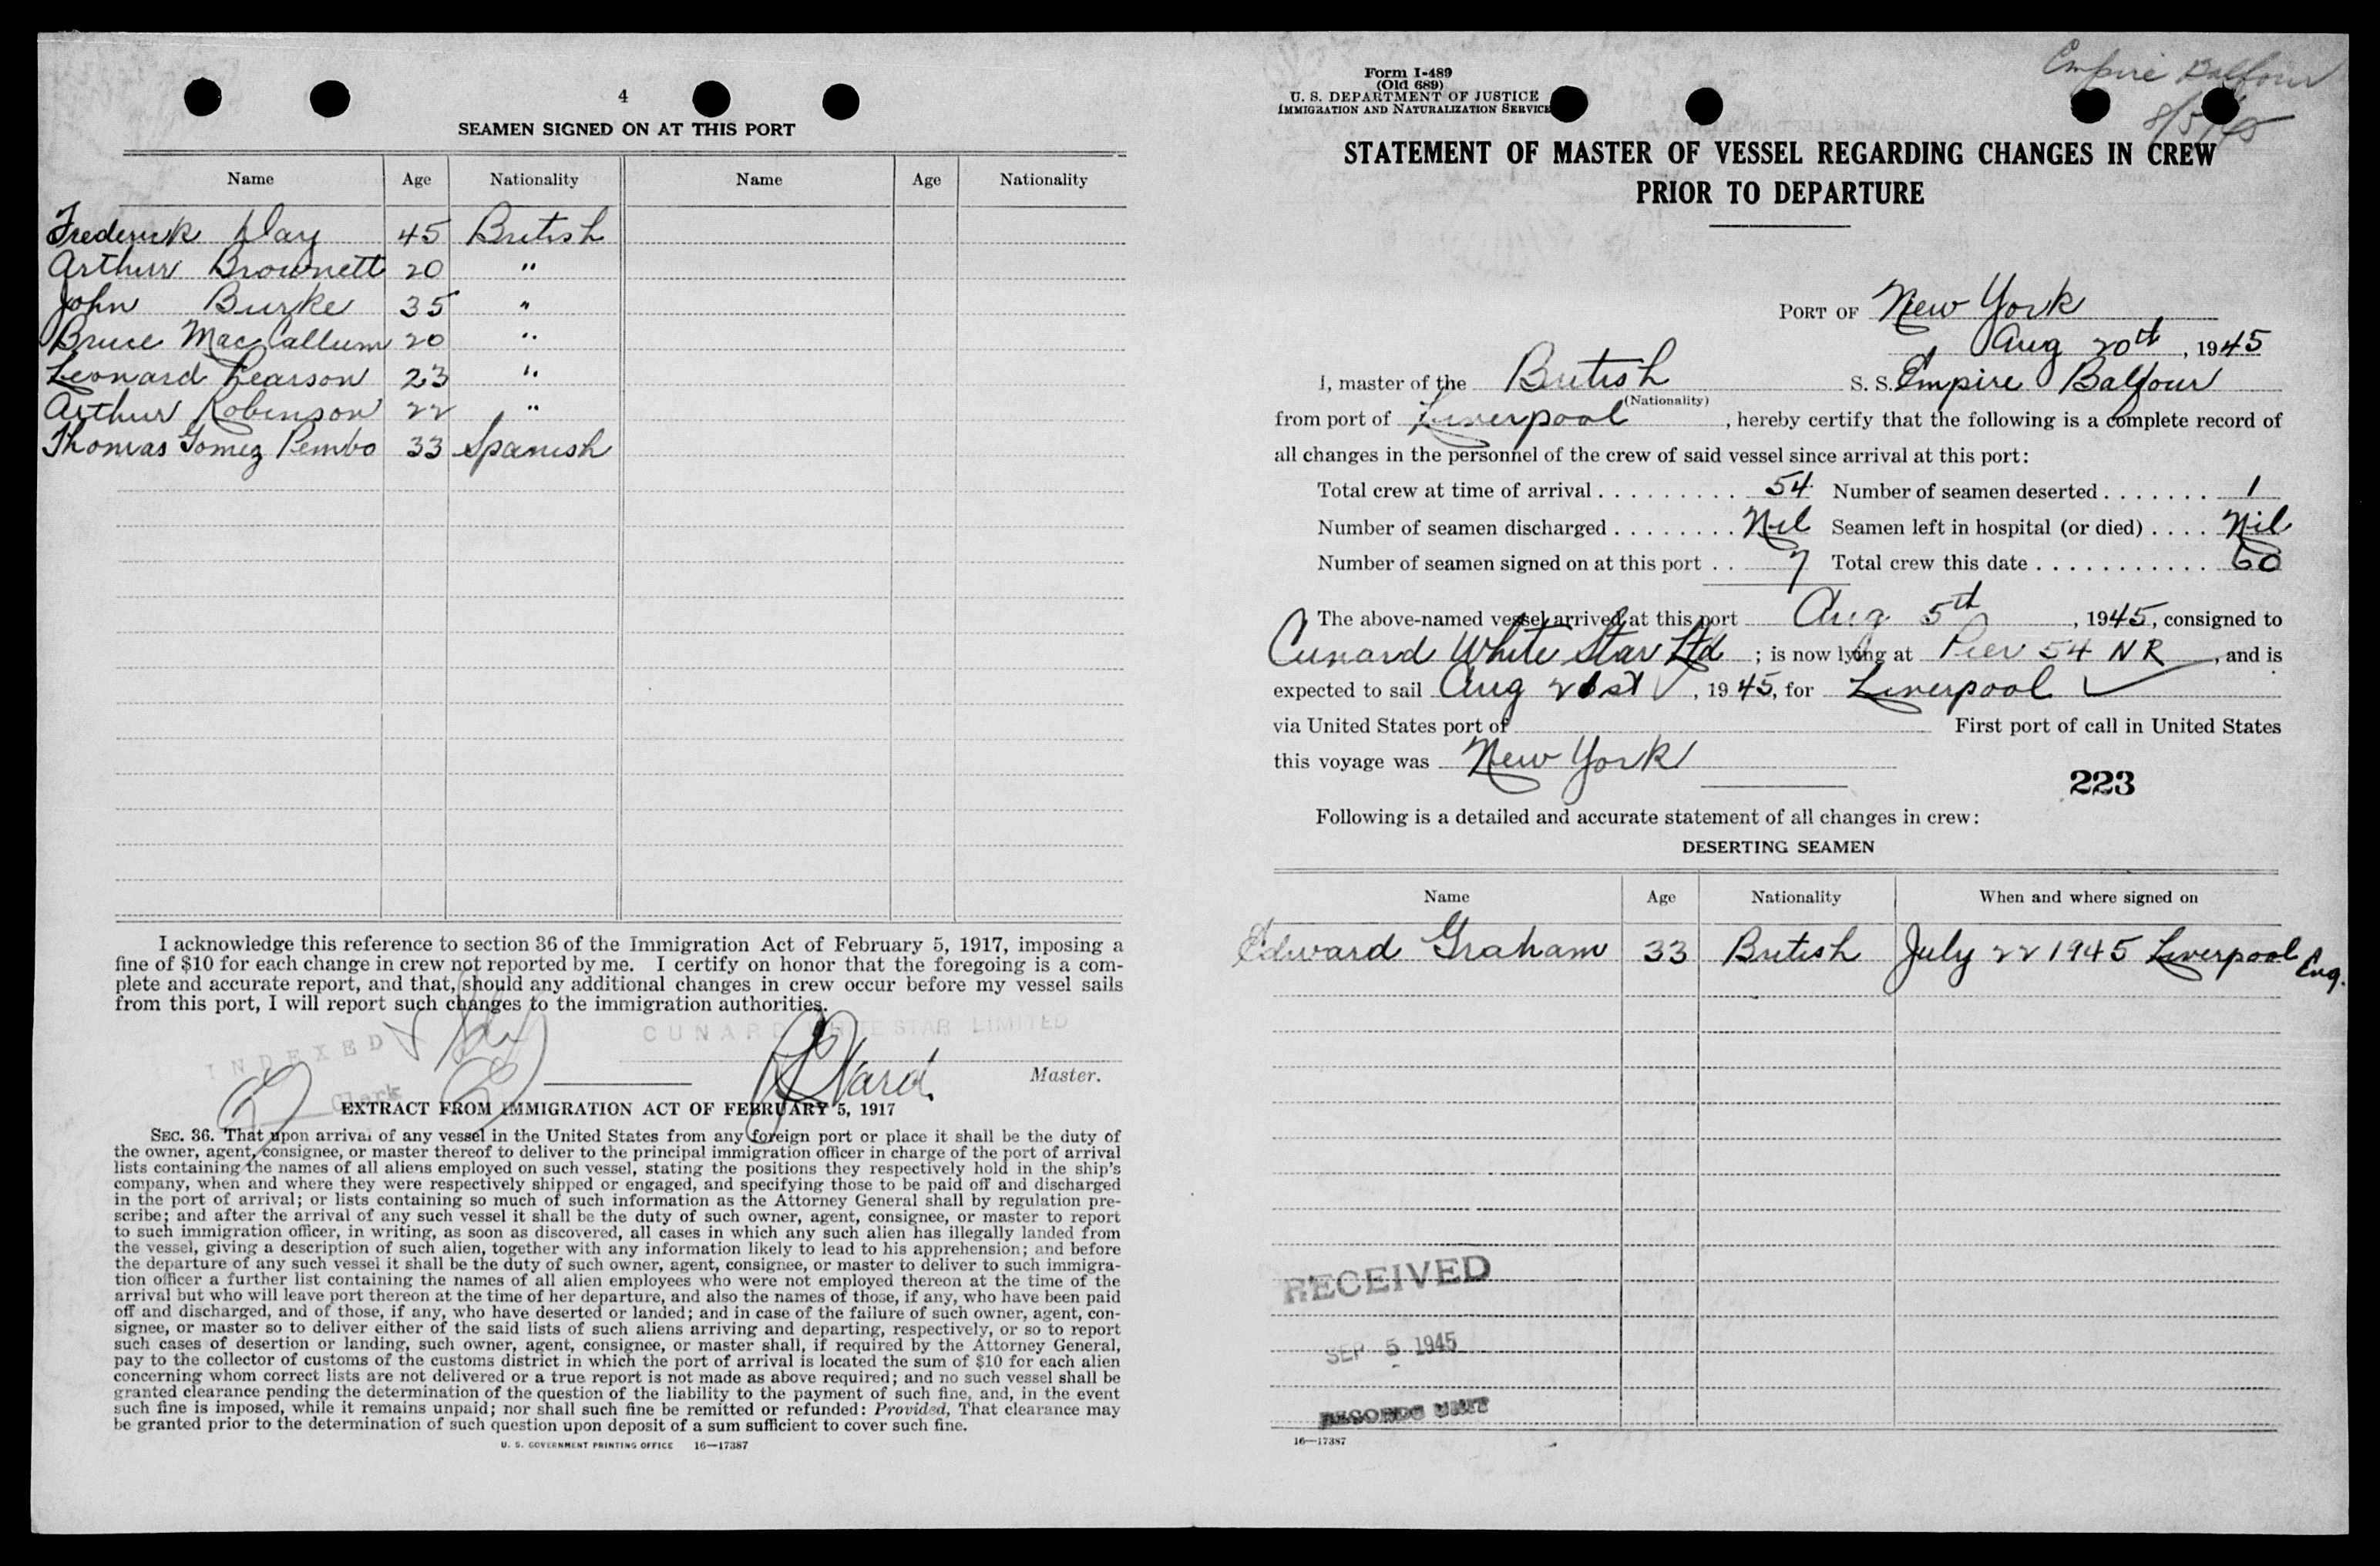 4
SEAMEN SIGNED ON AT THIS PORT
Name Age Nationality Name Age Nationality
Frederick Day 45 British
Arthur Brownett 20 "
John Burke 35 "
Bruce MacCallum 20 "
Leonard Pearson 23 "
Arthur Robinson 22 "
Thomas Gomez Pembo 33 Spanish
I acknowledge this reference to section 36 of the Immigration Act of February 5, 1917, imposing a
fine of $10 for each change in crew not reported by me. I certify on honor that the foregoing is a com-
plete and accurate report, and that, should any additional changes in crew occur before my vessel sails
from this port, I will report such changes to the immigration authorities.
CUNARD WHITE STAR LIMITED
INDEXED
Ward. Master.
Clerk
EXTRACT FROM IMMIGRATION ACT OF FEBRUARY 5, 1917
SEC. 36. That upon arrival of any vessel in the United States from any foreign port or place it shall be the duty of
the owner, agent, consignee, or master thereof to deliver to the principal immigration officer in charge of the port of arrival
lists containing the names of all aliens employed on such vessel, stating the positions they respectively hold in the ship's
company, when and where they were respectively shipped or engaged, and specifying those to be paid off and discharged
in the port of arrival; or lists containing so much of such information as the Attorney General shall by regulation pre-
scribe; and after the arrival of any such vessel it shall be the duty of such owner, agent, consignee, or master to report
to such immigration officer, in writing, as soon as discovered, all cases in which any such alien has illegally landed from
the vessel, giving a description of such alien, together with any information likely to lead to his apprehension; and before
the departure of any such vessel it shall be the duty of such owner, agent, consignee, or master to deliver to such immigra-
tion officer a further list containing the names of all alien employees who were not employed thereon at the time of the
arrival but who will leave port thereon at the time of her departure, and also the names of those, if any, who have been paid
off and discharged, and of those, if any, who have deserted or landed; and in case of the failure of such owner, agent, con-
signee, or master so to deliver either of the said lists of such aliens arriving and departing, respectively, or so to report
such cases of desertion or landing, such owner, agent, consignee, or master shall, if required by the Attorney General,
pay to the collector of customs of the customs district in which the port of arrival is located the sum of $10 for each alien
concerning whom correct lists are not delivered or a true report is not made as above required; and no such vessel shall be
granted clearance pending the determination of the question of the liability to the payment of such fine, and, in the event
such fine is imposed, while it remains unpaid; nor shall such fine be remitted or refunded: Provided, That clearance may
be granted prior to the determination of such question upon deposit of a sum sufficient to cover such fine.
U. S. GOVERNMENT PRINTING OFFICE 16—17387
Form I-489
(Old 689)
U. S. DEPARTMENT OF JUSTICE
IMMIGRATION AND NATURALIZATION SERVICE
Empire Balfour
8/5/45
STATEMENT OF MASTER OF VESSEL REGARDING CHANGES IN CREW
PRIOR TO DEPARTURE
PORT OF New York
Aug 20th, 1945
I, master of the British S. S. Empire Balfour
(Nationality)
from port of Liverpool, hereby certify that the following is a complete record of
all changes in the personnel of the crew of said vessel since arrival at this port:
Total crew at time of arrival . . . . . . . . . 54 Number of seamen deserted . . . . . . . 1
Number of seamen discharged . . . . . . . . Nil Seamen left in hospital (or died) . . . . Nil
Number of seamen signed on at this port . . 7 Total crew this date . . . . . . . . . . . . 60
The above-named vessel arrived at this port Aug 5th, 1945, consigned to
Cunard White Star Ltd; is now lying at Pier 54 NR, and is
expected to sail Aug 21st, 1945, for Liverpool
via United States port of First port of call in United States
this voyage was New York
223
Following is a detailed and accurate statement of all changes in crew:
DESERTING SEAMEN
Name Age Nationality When and where signed on
Edward Graham 33 British July 22 1945 Liverpool Eng.
RECEIVED
SEP 5 1945
RECORDS UNIT
16—17387